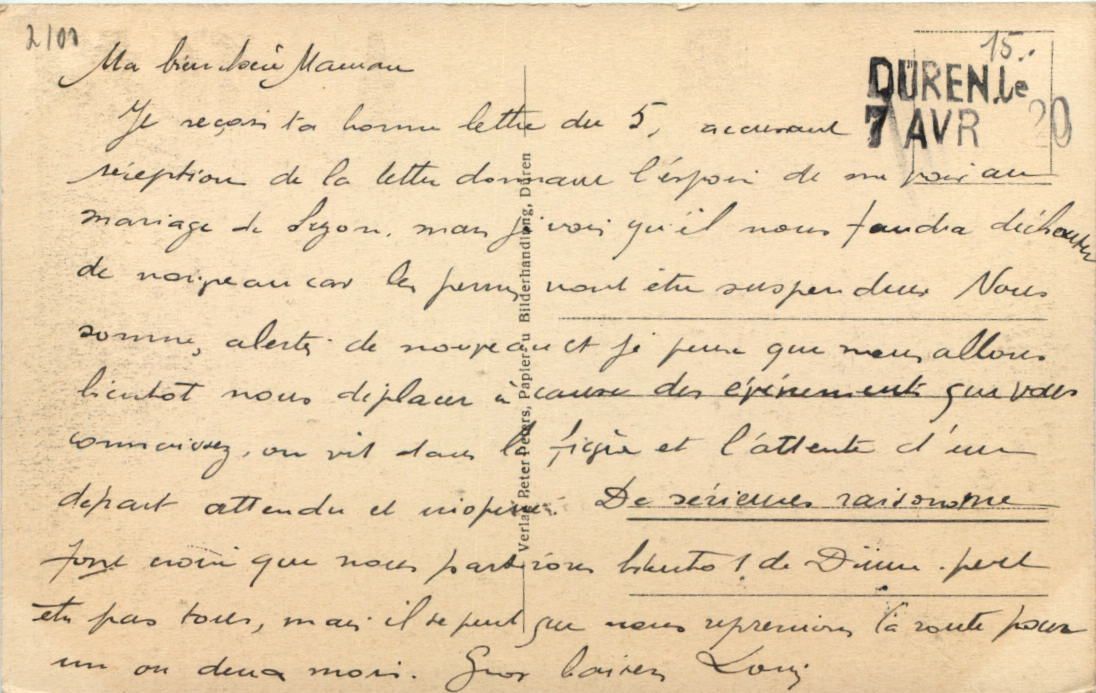 2/00
15.
DÜREN.le
7 AVR 20
Ma bien chère Maman
Je reçois ta bonne lettre du 5, accusant
réception de la lettre donnant l'espoir de me voir au
mariage de Suzon. mais je vois qu'il nous faudra déchanter
de nouveau car les perms vont être suspendues Nous
sommes alertés de nouveau et je pense que nous allons
bientot nous déplacer à cause des événements que vous
connaissez, on vit dans la fièvre et l'attente d'un
départ attendu et inopiné. De sérieuses raisons me
font croire que nous partirons bientot de Düren. peut
etre pas tous, mais il se peut que nous reprenions la route pour
un ou deux mois. Gros baisers Louis
Verlag Peter Peters, Papier- u Bilderhandlung, Düren